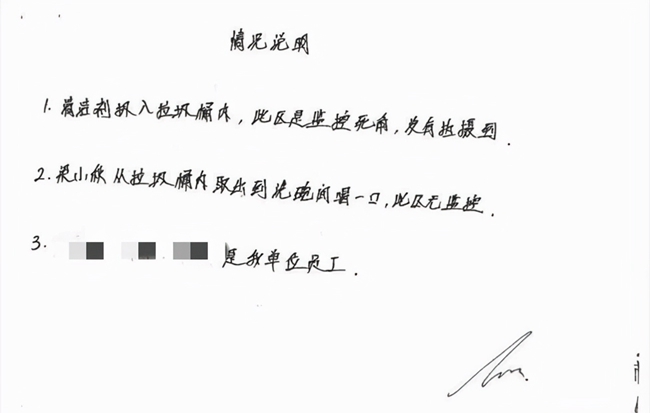 情况说明
1. 清洁剂扔入垃圾桶内，此区是监控死角，没有拍摄到.
2. 梁小侠从垃圾桶内取出到洗碗间喝一口，此区无监控.
3. 是我单位员工.